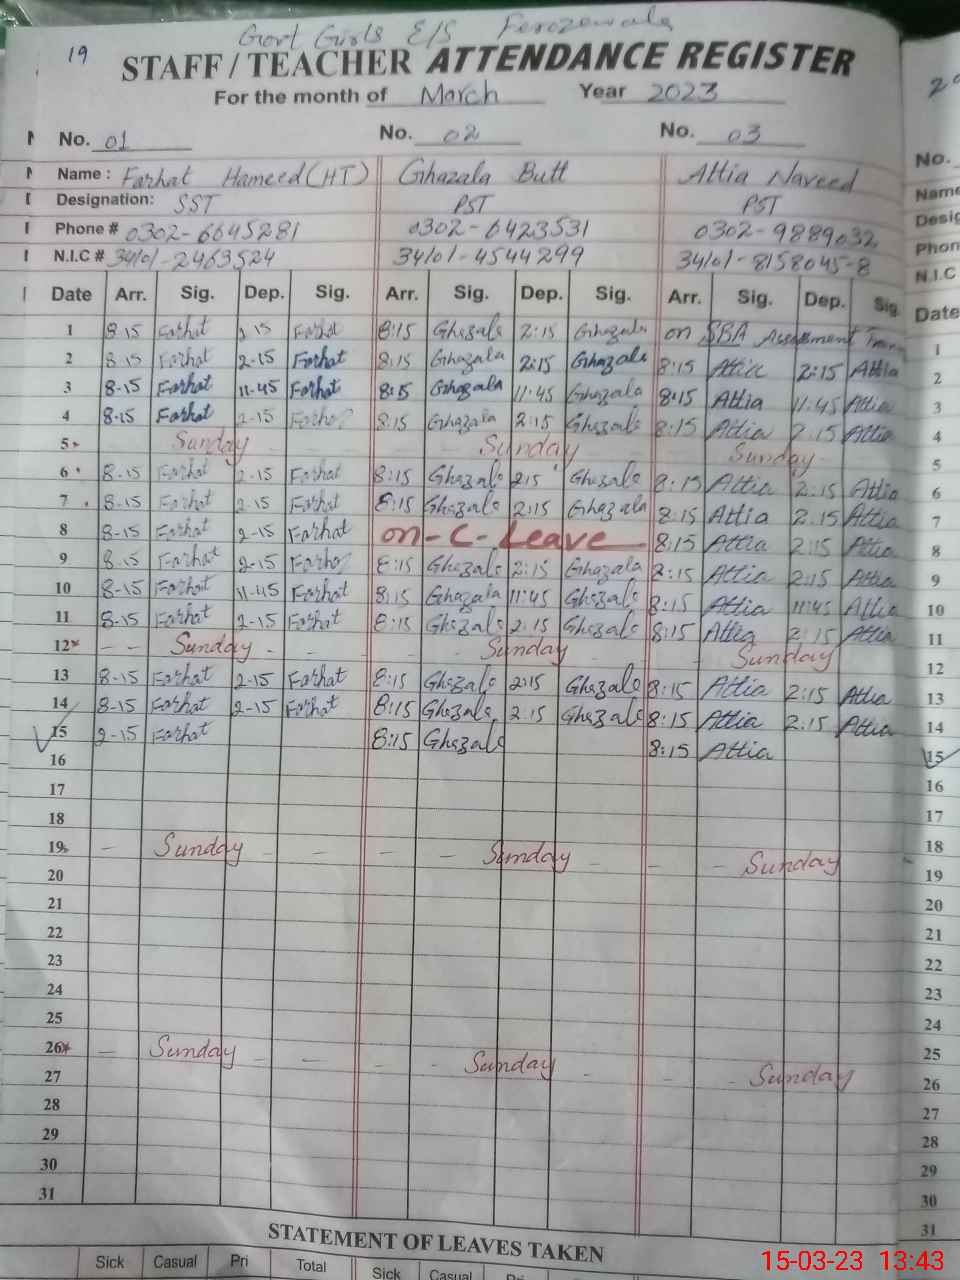 Govt Girls E/S Ferozewala
19
STAFF / TEACHER ATTENDANCE REGISTER
For the month of March Year 2023
No. 01 No. 02 No. 03
Name : Farhat Hameed (HT) Ghazala Butt Attia Naveed
Designation: SST PST PST
Phone # 0302-6645281 0302-6423531 0302-9889032
N.I.C # 34101-2463524 34101-4544299 34101-8158045-8
Date Arr. Sig. Dep. Sig. Arr. Sig. Dep. Sig. Arr. Sig. Dep. Sig.
1 8-15 Farhat 2-15 Farhat 8:15 Ghazala 2:15 Ghazala on SBA Assessment
2 8-15 Farhat 2-15 Farhat 8:15 Ghazala 2:15 Ghazala 8:15 Attia 2:15 Attia
3 8-15 Farhat 11-45 Farhat 8:15 Ghazala 11:45 Ghazala 8:15 Attia 11:45 Attia
4 8-15 Farhat 2-15 Farhat 8:15 Ghazala 2:15 Ghazala 8:15 Attia 2:15 Attia
5 Sunday Sunday Sunday
6 8-15 Farhat 2-15 Farhat 8:15 Ghazala 2:15 Ghazala 8:15 Attia 2:15 Attia
7 8-15 Farhat 2-15 Farhat 8:15 Ghazala 2:15 Ghazala 8:15 Attia 2:15 Attia
8 8-15 Farhat 2-15 Farhat on - C - Leave 8:15 Attia 2:15 Attia
9 8-15 Farhat 2-15 Farhat 8:15 Ghazala 2:15 Ghazala 8:15 Attia 2:15 Attia
10 8-15 Farhat 11-45 Farhat 8:15 Ghazala 11:45 Ghazala 8:15 Attia 11:45 Attia
11 8-15 Farhat 2-15 Farhat 8:15 Ghazala 2:15 Ghazala 8:15 Attia 2:15 Attia
12 - - Sunday - - - Sunday - - Sunday
13 8-15 Farhat 2-15 Farhat 8:15 Ghazala 2:15 Ghazala 8:15 Attia 2:15 Attia
14 8-15 Farhat 2-15 Farhat 8:15 Ghazala 2:15 Ghazala 8:15 Attia 2:15 Attia
15 2-15 Farhat 8:15 Ghazala 8:15 Attia
16
17
18
19 - Sunday - - - - Sunday - - - Sunday
20
21
22
23
24
25
26 - Sunday - - - - Sunday - - - Sunday
27
28
29
30
31
STATEMENT OF LEAVES TAKEN
Sick Casual Pri Total Sick Casual
No.
Name
Desig
Phon
N.I.C
Date
1
2
3
4
5
6
7
8
9
10
11
12
13
14
15
16
17
18
19
20
21
22
23
24
25
26
27
28
29
30
31
15-03-23 13:43